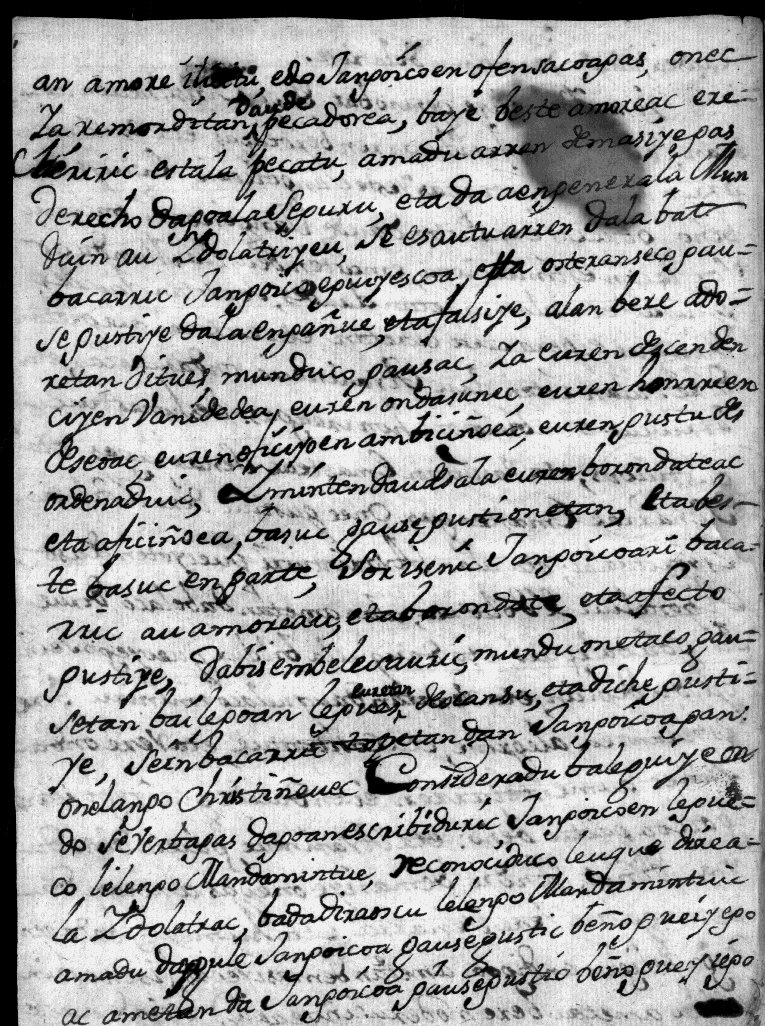 an amore ilictu, edo Janpoicoen ofensacoapas, onec
Za remorditan daude pecadorea, baye beste amoreac ere-
Cheriric estala pecatu, amadu arren demasiyepas
derecho dapoala Sepuru, eta da aen generala Mun
duin au Zdolatriyeu, se esautu arren dala bat
bacarric Janpoico eguiyescoa, eta osteranseco gau=
se gustiye dala engañue, eta falsiye, alan bere ado=
retan ditues munduco gausac, Za euren descenden
ciyen Vanidedea, euren ondasunec, euren honrreen
deseoac, euren oficiyoen ambiciñoea, euren gustu des
ordenaduic, Zmintendaudesala euren borondateac
eta aficiñoea, basuc gause gustionetan, eta bes-
te basuc en parte, Sor isenic Janpoicoari baca-
rric au amoreau, eta borondate, eta afecto
gustiye, dabis embelecauric, munduonetaco gau=
setan bai lepoan lepices, euretan descansu, eta diche gusti=
ye, Sein bacarric topetan dan Janpoicoa pan.
onelanpo Christiñeuec Consideradu baleguiye on
do Se Verbapas dapoan escribiduric Janpoicoen legue-
co lelenpo Mandamintue, reconociduco leuque direa=
la Zdolatrac, bada dirascu lelenpo Mandamintuic
amadu dapule Janpoicoa gause gustic beño gueiyepo
ac ametan da Janpoicoa gause gustic beño gueyiepo